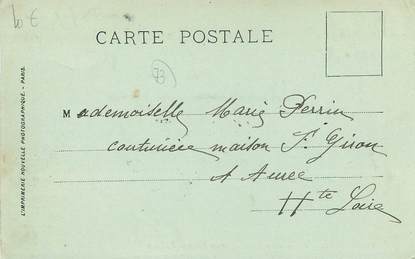 10 €
CARTE POSTALE
Mademoiselle Marie Perrin
couturière maison F. Giron
A Aurec
Hte Loire
L'IMPRIMERIE NOUVELLE PHOTOGRAPHIQUE. - PARIS.